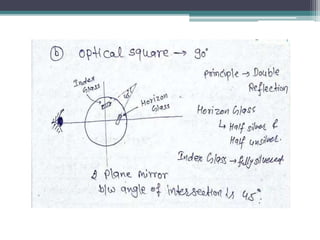 (b) optical square → 90°
Principle → Double
Reflection
Index
Glass
45°
Horizon
Glass
Horizon Glass
↳ Half silver &
Half unsilver.
Index Glass → fully silvered
2 Plane mirror
b/w angle of intersection is 45°.